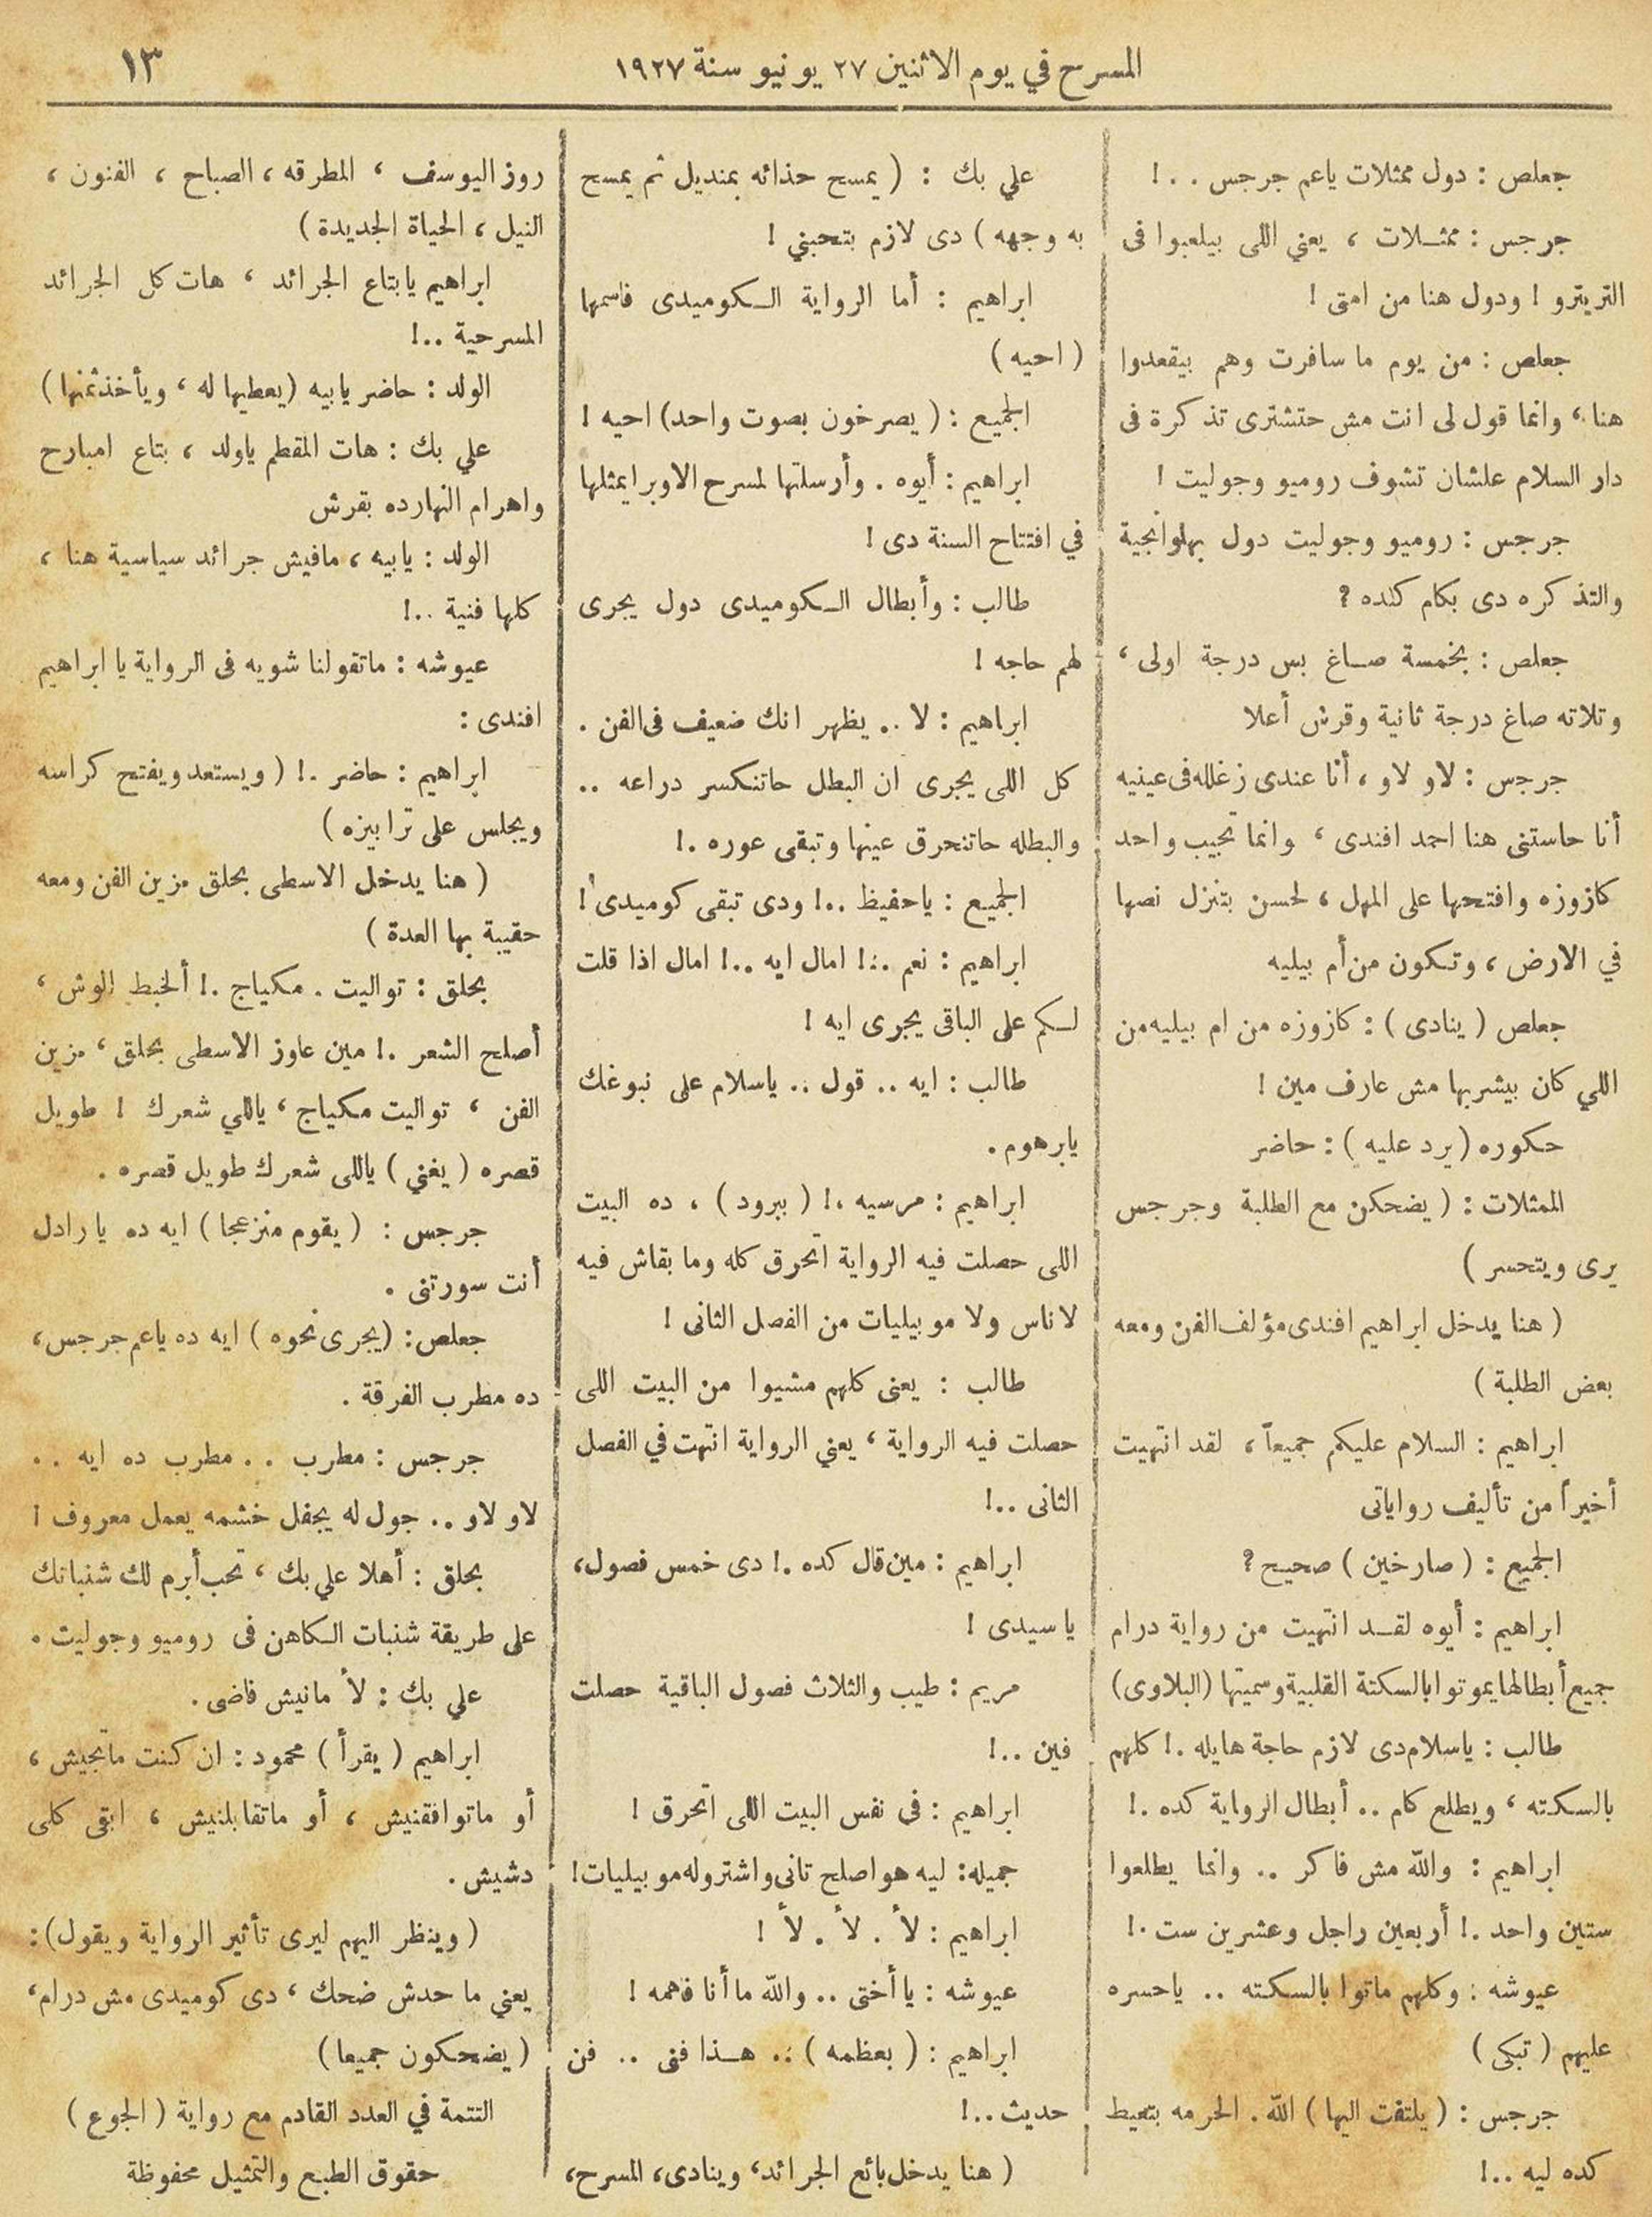 المسرح في يوم الاثنين ٢٧ يونيو سنة ١٩٢٧
١٣
جعلص : دول ممثلات ياعم جرجس . . !
جرجس : ممثـلات ، يعني اللى بيلعبوا فى
التريترو ! ودول هنا من امتى !
جعلص : من يوم ما سافرت وهم بيقعدوا
هنا ، وانما قول لى انت مش حتشترى تذكرة فى
دار السلام علشان تشوف روميو وجوليت !
جرجس : روميو وجوليت دول بهلوانجية
والتذكره دى بكام كنده ؟
جعلص : بخمسة صـاغ بس درجة اولى ،
وتلاته صاغ درجة ثانية وقرش أعلا
جرجس : لاو لاو ، أنا عندى زغلله فى عينيه
أنا حاستنى هنا احمد افندى ، وانما تجيب واحد
كازوزه وافتحها على المهل ، لحسن بتنزل نصها
في الارض ، وتكون من أم بيليه
جعلص ( ينادى ) : كازوزه من ام بيليه من
اللي كان بيشربها مش عارف مين !
حكوره ( يرد عليه ) : حاضر
الممثلات : ( يضحكن مع الطلبة وجرجس
يرى ويتحسر )
( هنا يدخل ابراهيم افندى مؤلف الفن ومعه
بعض الطلبة )
ابراهيم : السلام عليكم جميعاً ، لقد انتهيت
أخيراً من تأليف رواياتى
الجميع : ( صارخين ) صحيح ؟
ابراهيم : أيوه لقـد انتهيت من رواية درام
جميع أبطالها يموتوا بالسكتة القلبية وسميتها (البلاوى)
طالب : ياسلام دى لازم حاجة هايله .! كلهم
بالسكته ، ويطلع كام .. أبطال الرواية كده .!
ابراهيم : والله مش فاكر .. وانما يطلعوا
ستين واحد .! أربعين راجل وعشرين ست .!
عيوشه : وكلهم ماتوا بالسكته .. ياحسره
عليهم ( تبكى )
جرجس : ( يلتفت اليها ) الله . الحرمه بتعيط
كده ليه ..!
علي بك : ( يمسح حذائه بمنديل ثم يمسح
به وجهه ) دى لازم بتحبني !
ابراهيم : أما الرواية الـكوميدى فاسمها
( احيه )
الجميع : ( يصرخون بصوت واحد) احيه !
ابراهيم : أيوه . وأرسلتها لمسرح الاوبرا يمثلها
في افتتاح السنة دى !
طالب : وأبطال الـكوميدى دول يجرى
لهم حاجه !
ابراهيم : لا .. يظهر انك ضعيف فى الفن .
كل اللى يجرى ان البطل حاتنكسر دراعه ..
والبطله حاتنحرق عينها وتبقى عوره .!
الجميع : ياحفيظ ..! ودى تبقى كوميدى !
ابراهيم : نعم ..! امال ايه ..! امال اذا قلت
لـكم على الباقى يجرى ايه !
طالب : ايه .. قول .. ياسلام على نبوغك
يابرهوم .
ابراهيم : مرسيه .! ( ببرود ) ، ده البيت
اللى حصلت فيه الرواية اتحرق كله وما بقاش فيه
لاناس ولا موبيليات من الفصل الثانى !
طالب : يعنى كلهم مشيوا من البيت اللى
حصلت فيه الرواية ، يعني الرواية انتهت في الفصل
الثانى ..!
ابراهيم : مين قال كده .! دى خمس فصول،
ياسيدى !
مريم : طيب والثلاث فصول الباقية حصلت
فين ..!
ابراهيم : فى نفس البيت اللى اتحرق !
جميله: ليه هو اصلح تانى واشتروله موبيليات!
ابراهيم : لأ . لأ . لأ !
عيوشه : يا أختى .. والله ما أنا فهمه !
ابراهيم : ( بعظمه ) .. هـذا فنى .. فن
حديث ..!
( هنا يدخل بائع الجرائد، وينادى، المسرح،
روز اليوسف ، المطرقه ، الصباح ، الفنون ،
النيل ، الحياة الجديدة )
ابراهيم يابتاع الجرائد ، هات كل الجرائد
المسرحية ..!
الولد : حاضر يابيه (يعطيها له ، ويأخذ ثمنها)
علي بك : هات المقطم ياولد ، بتاع امبارح
واهرام النهارده بقرش
الولد : يابيه ، مافيش جرائد سياسية هنا ،
كلها فنية ..!
عيوشه : ماتقولنا شويه فى الرواية يا ابراهيم
افندى :
ابراهيم : حاضر .! ( ويستعد ويفتح كراسه
ويجلس على ترابيزه )
( هنا يدخل الاسطى بحلق مزين الفن ومعه
حقيبة بها العدة )
بحلق : تواليت . مكياج .! ألخبط الوش ،
أصلح الشعر .! مين عاوز الاسطى بحلق ، مزين
الفن ، تواليت مكياج ، ياللي شعرك ! طويل
قصره ( يغني ) ياللى شعرك طويل قصره .
جرجس : ( يقوم منزعجا ) ايه ده يا رادل
أنت سورتنى .
جعلص: (يجرى نحوه ) ايه ده ياعم جرجس،
ده مطرب الفرقة .
جرجس : مطرب . . مطرب ده ايه . .
لاو لاو .. جول له يجفل خشمه يعمل معروف !
بحلق : أهلا علي بك ، تحب أبرم لك شنباتك
على طريقة شنبات الـكاهن فى روميو وجوليت .
علي بك : لأ مانيش فاضى .
ابراهيم ( يقرأ ) محمود : ان كنت ماتجيش ،
أو ماتوافقنيش ، أو ماتقابلنيش ، ابقى كلى
دشيش .
( وينظر اليهم ليرى تأثير الرواية ويقول):
يعني ما حدش ضحك ، دى كوميدى مش درام،
( يضحكون جميعا )
التتمة في العدد القادم مع رواية ( الجوع )
حقوق الطبع والتمثيل محفوظة